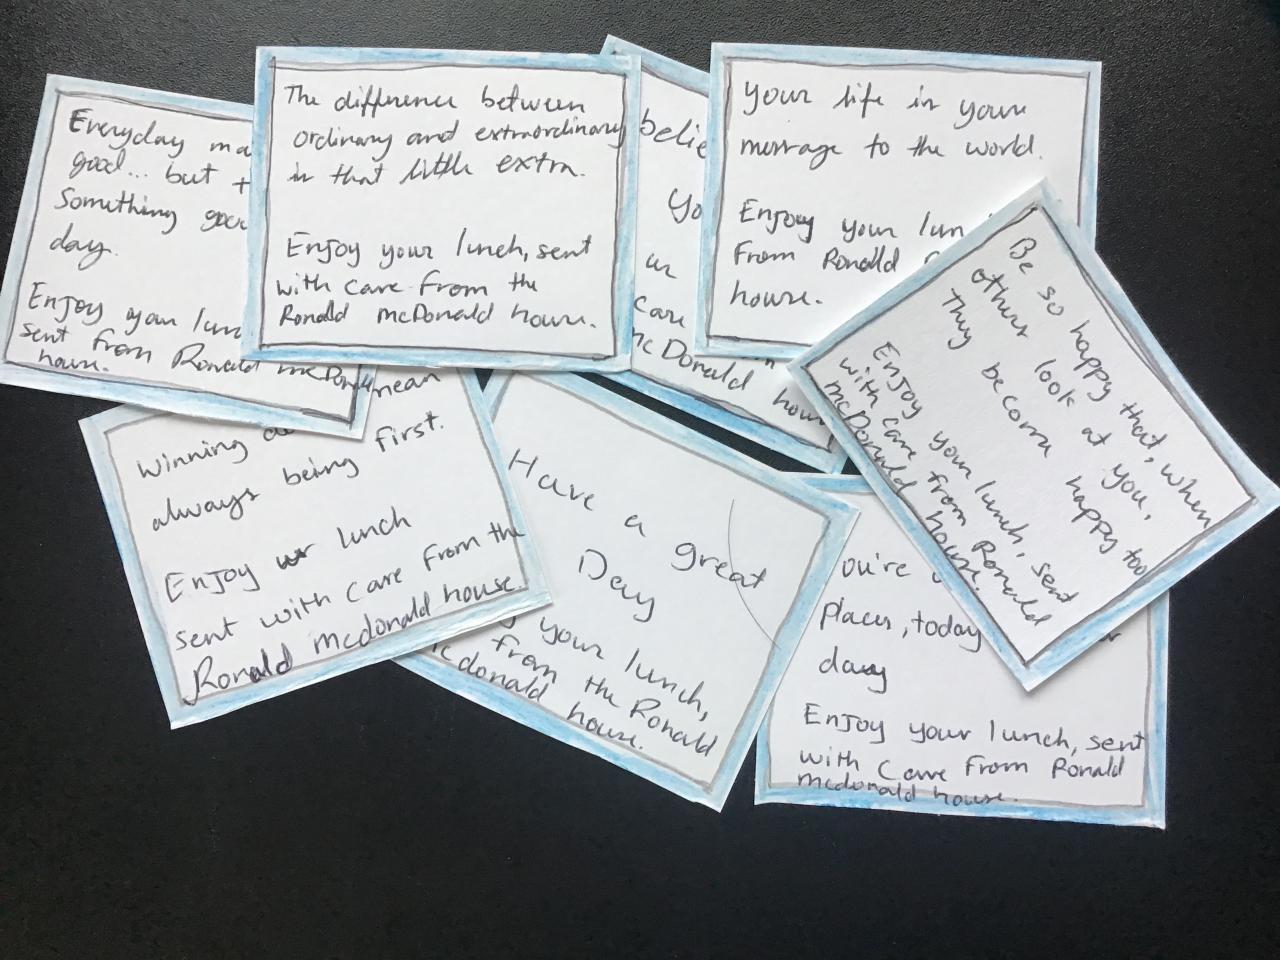 Everyday ma
good... but t
Something good
day.
Enjoy your lun
sent from Ronald mcDon
house.
The difference between
ordinary and extraordinary
is that little extra.
Enjoy your lunch, sent
with care from the
Ronald mcDonald house.
belie
Yo
ur
care
mcDonald
hous
Your life is your
message to the world.
Enjoy your lun
From Ronald
house.
Be so happy that, when
others look at you,
They become happy too
Enjoy your lunch, sent
with care from Ronald
mcDonald house.
mean
winning
always being first.
Enjoy ur lunch
sent with care from the
Ronald mcdonald house.
Have a great
Day
your lunch,
from the Ronald
mcdonald house.
ou're
places, today
day
Enjoy your lunch, sent
with care From Ronald
mcdonald house.